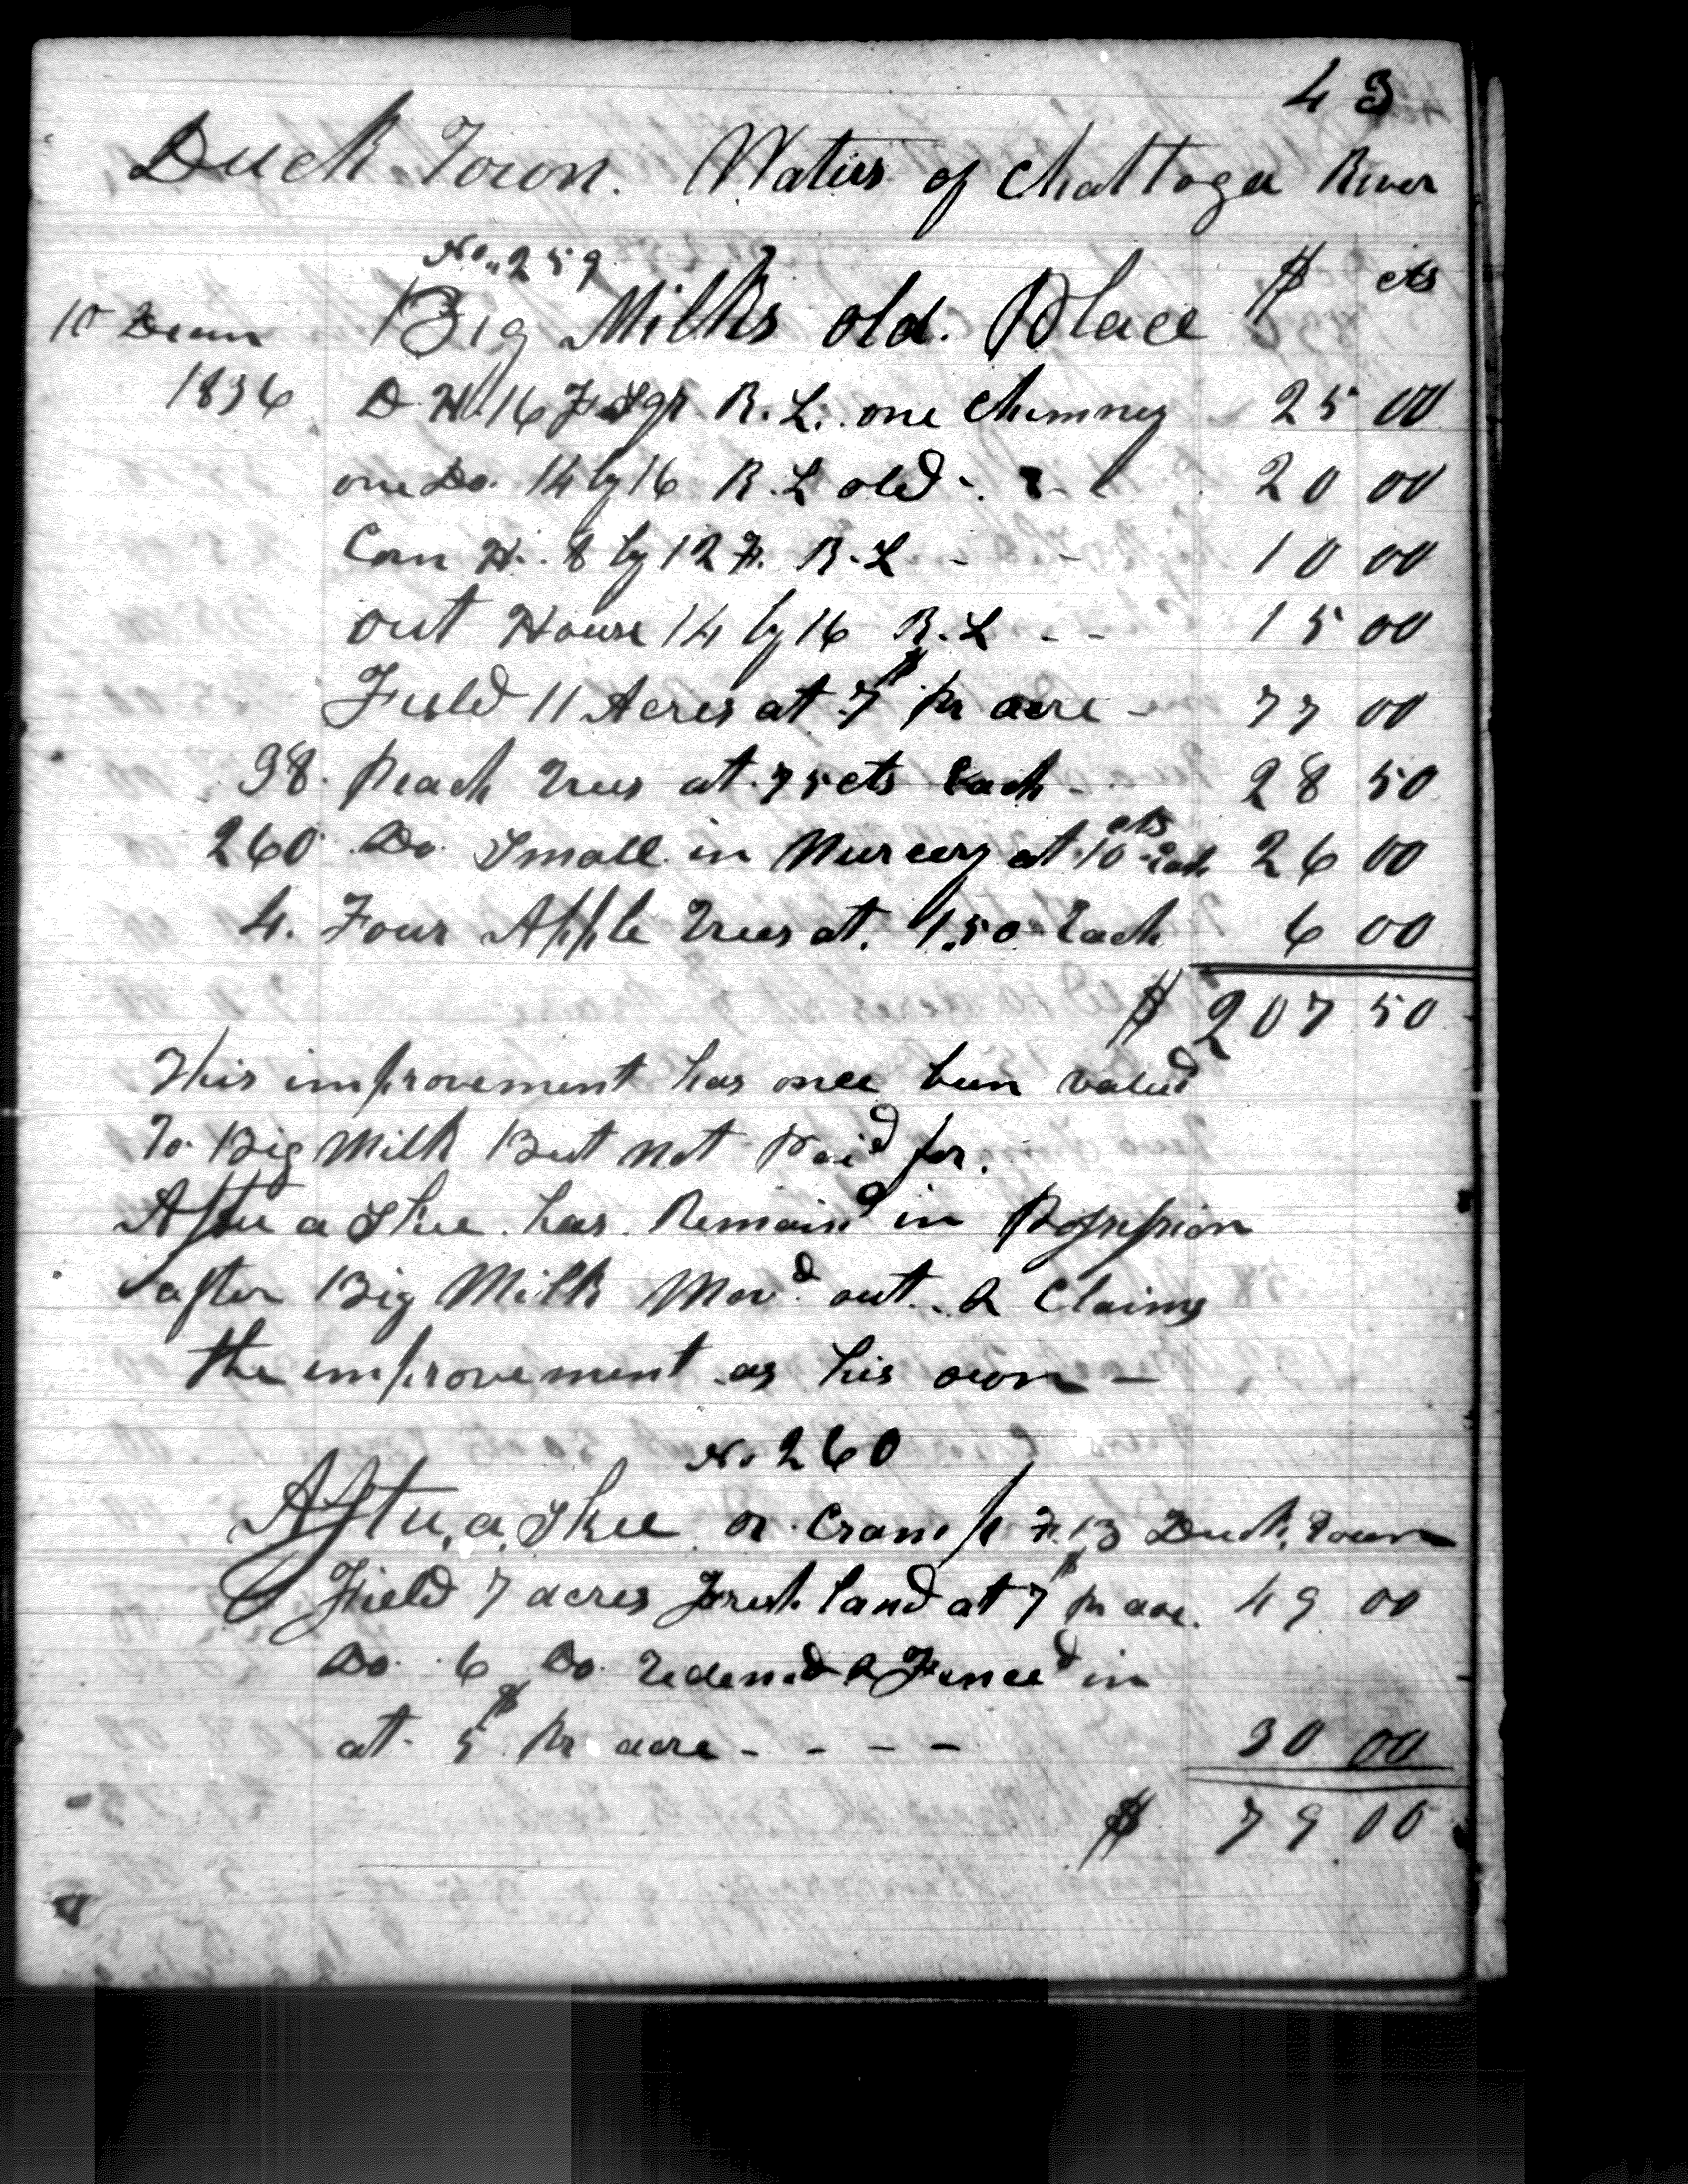 43
Duck Town. Waters of Chattoga River
No. 259 $ cts
10 Decm Big Milks old. Place
1836 D. H. 16 F. Sqr R. L. one Chimney 25 00
one Do. 14 by 16 R. L old - 20 00
Corn H. 8 by 12 F. R. L - - 10 00
out House 14 by 16 R. L - - 15 00
Field 11 Acres at 7$ pr acre - 77 00
38. peach Trees at 75 cts Each - 28 50
260 Do Small in Nurcery at 10 cts Each 26 00
4. Four Apple Trees at. 1.50 Each 6 00
$ 207 50
This improvement has once been valued
To Big Milk But not Paid for.
Aftu a Skee has Remaind in Possession
after Big Milk Movd out. & Claims
the improvement as his own -
No 260
Aftu, a, Skee or Cramp F. 13 Duck Town
Field 7 acres Fresh land at 7$ pr acre. 49 00
Do. 6 Do. & Fenced in
at 5$ pr acre - - - - 30 00
$ 79 00